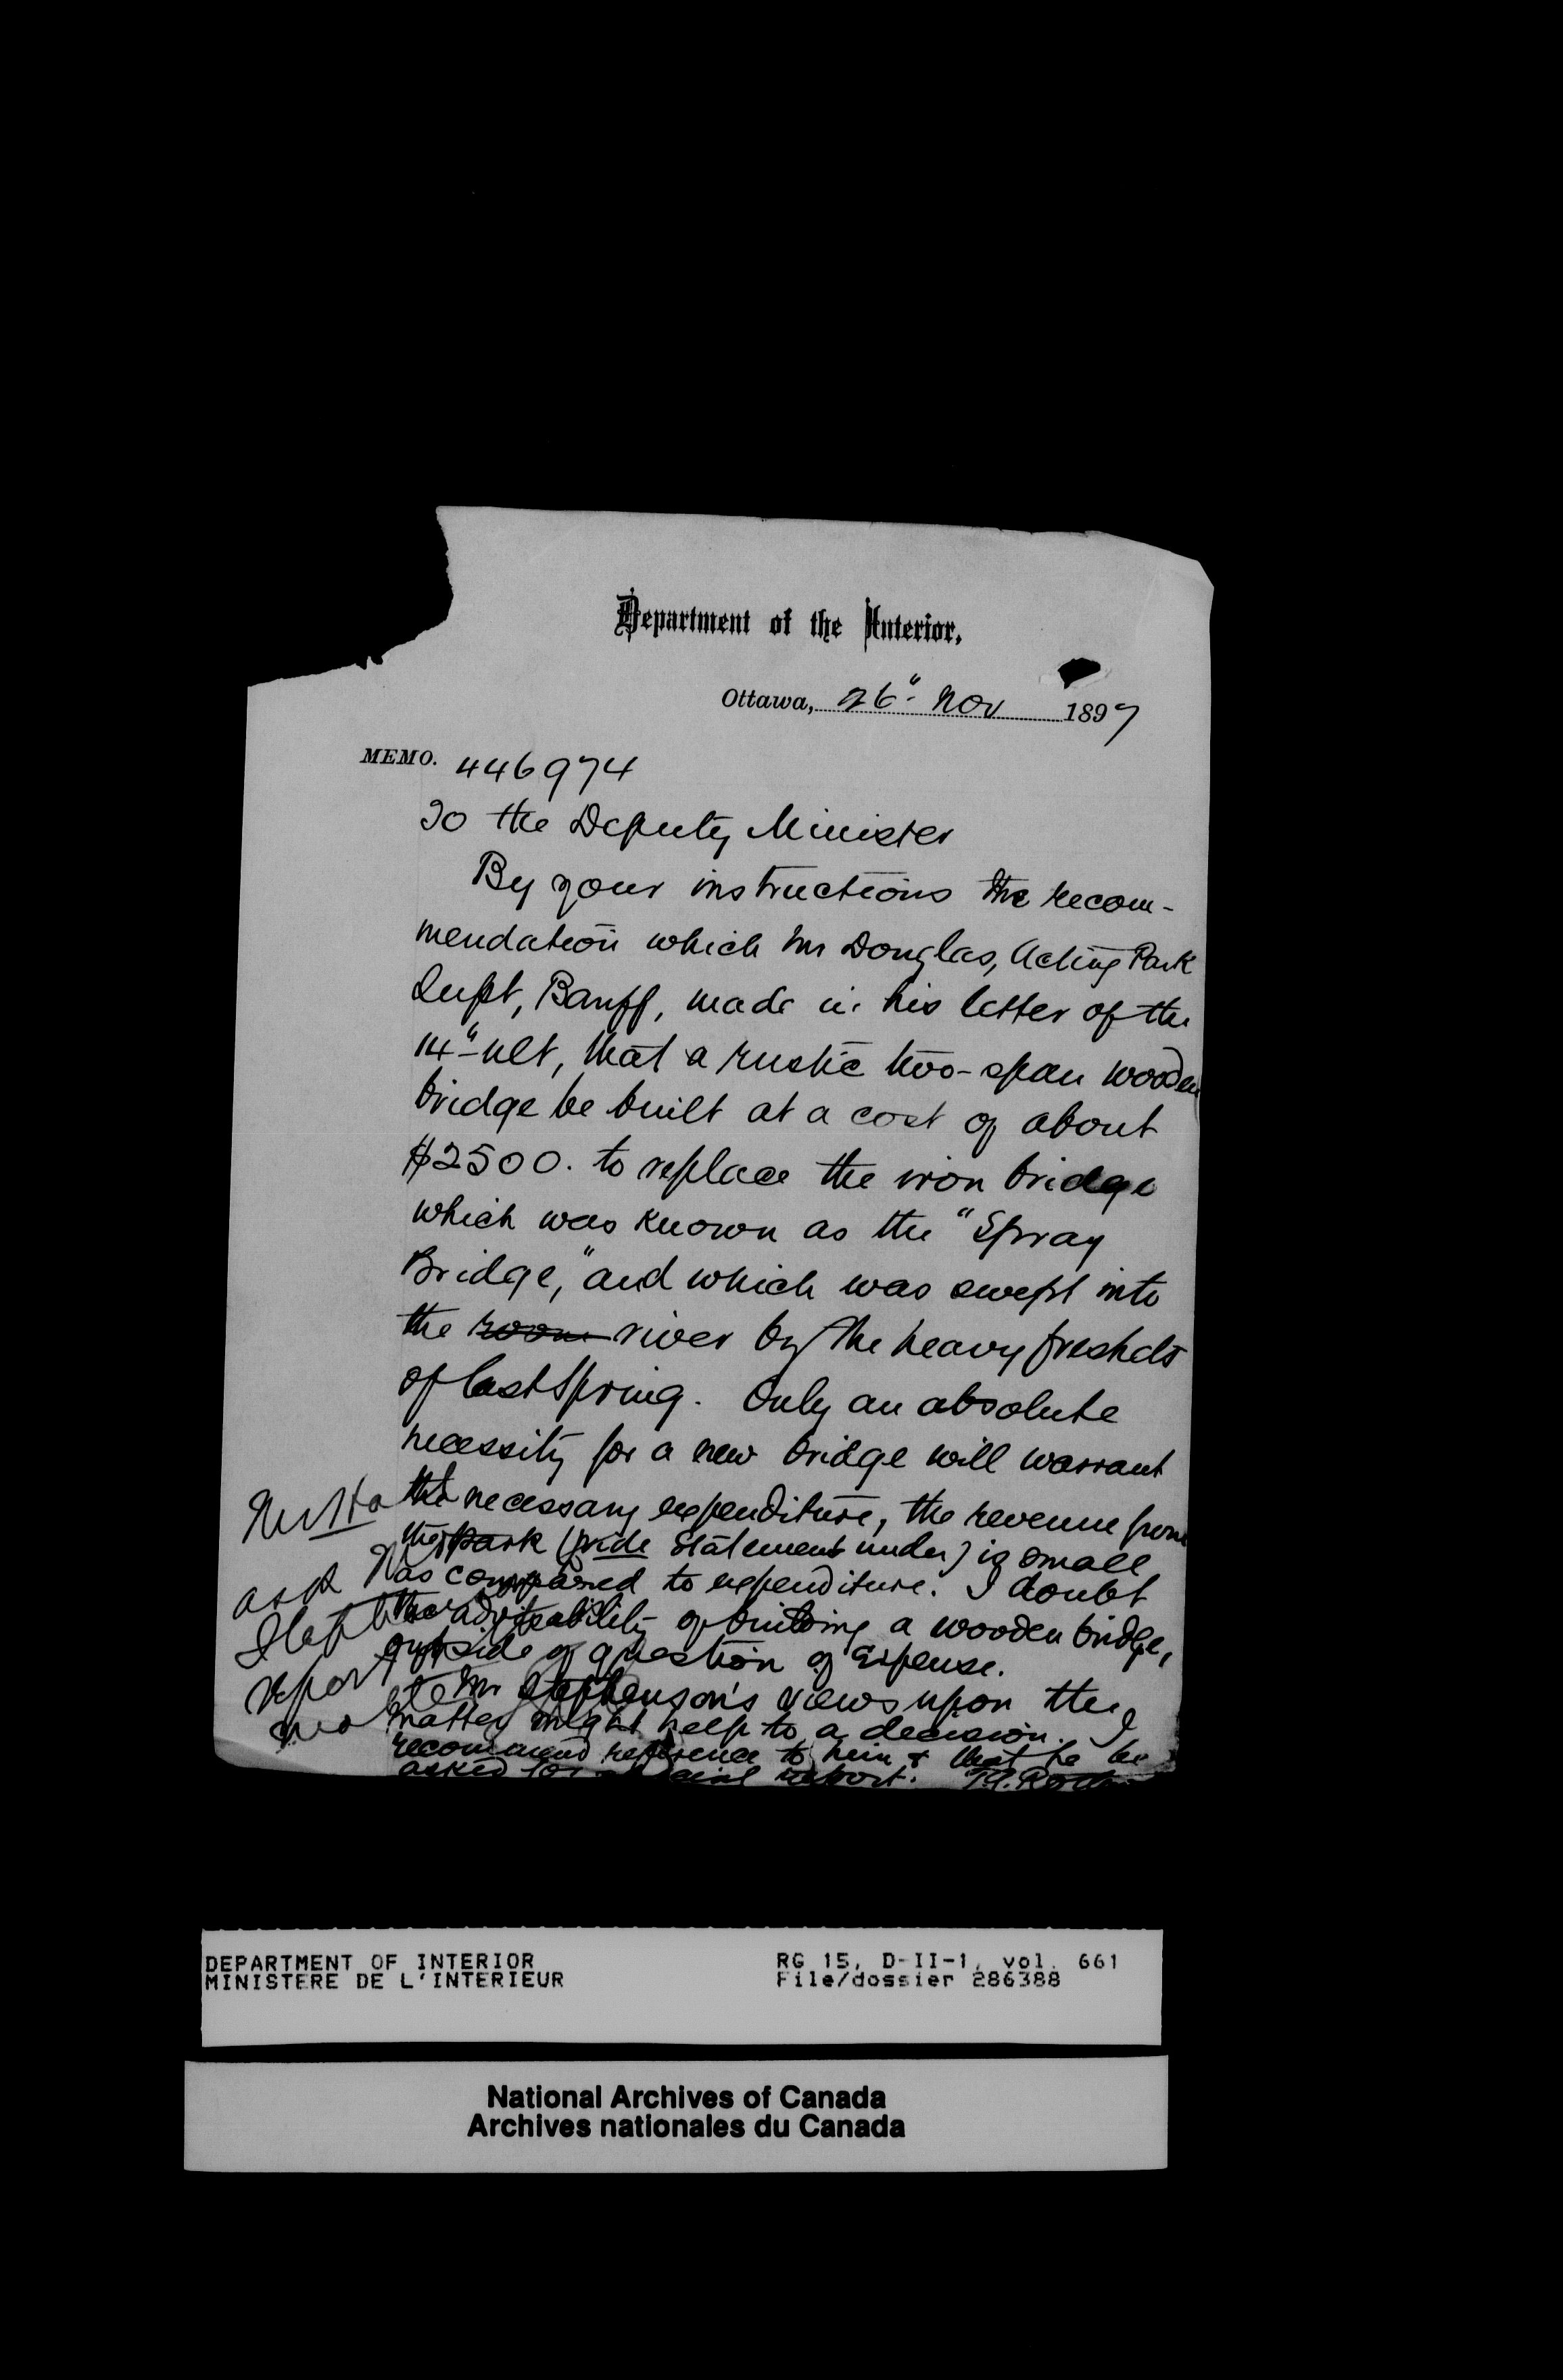 Department of the Interior.
Ottawa, 26" Nov 1897
MEMO. 446974
To the Deputy Minister
By your instructions the recom-
mendation which Mr Douglas, Acting Park
Supt, Banff, made in his letter of the
14" ult, that a rustic two-span wooden
bridge be built at a cost of about
$2500. to replace the iron bridge
which was known as the "Spray
Bridge," and which was swept into
the room river by the heavy freshets
of last Spring. Only an absolute
necessity for a new bridge will warrant
the necessary expenditure, the revenue from
the park (vide Statement under) is small
as compared to expenditure. I doubt
the advisability of building a wooden bridge,
outside of question of expense.
Mr Stephenson's views upon the
matter might help to a decision. I
recommend reference to him & that he be
asked for report.
ask
report
DEPARTMENT OF INTERIOR
MINISTERE DE L'INTERIEUR
RG 15, D-II-1, vol. 661
File/dossier 286388
National Archives of Canada
Archives nationales du Canada